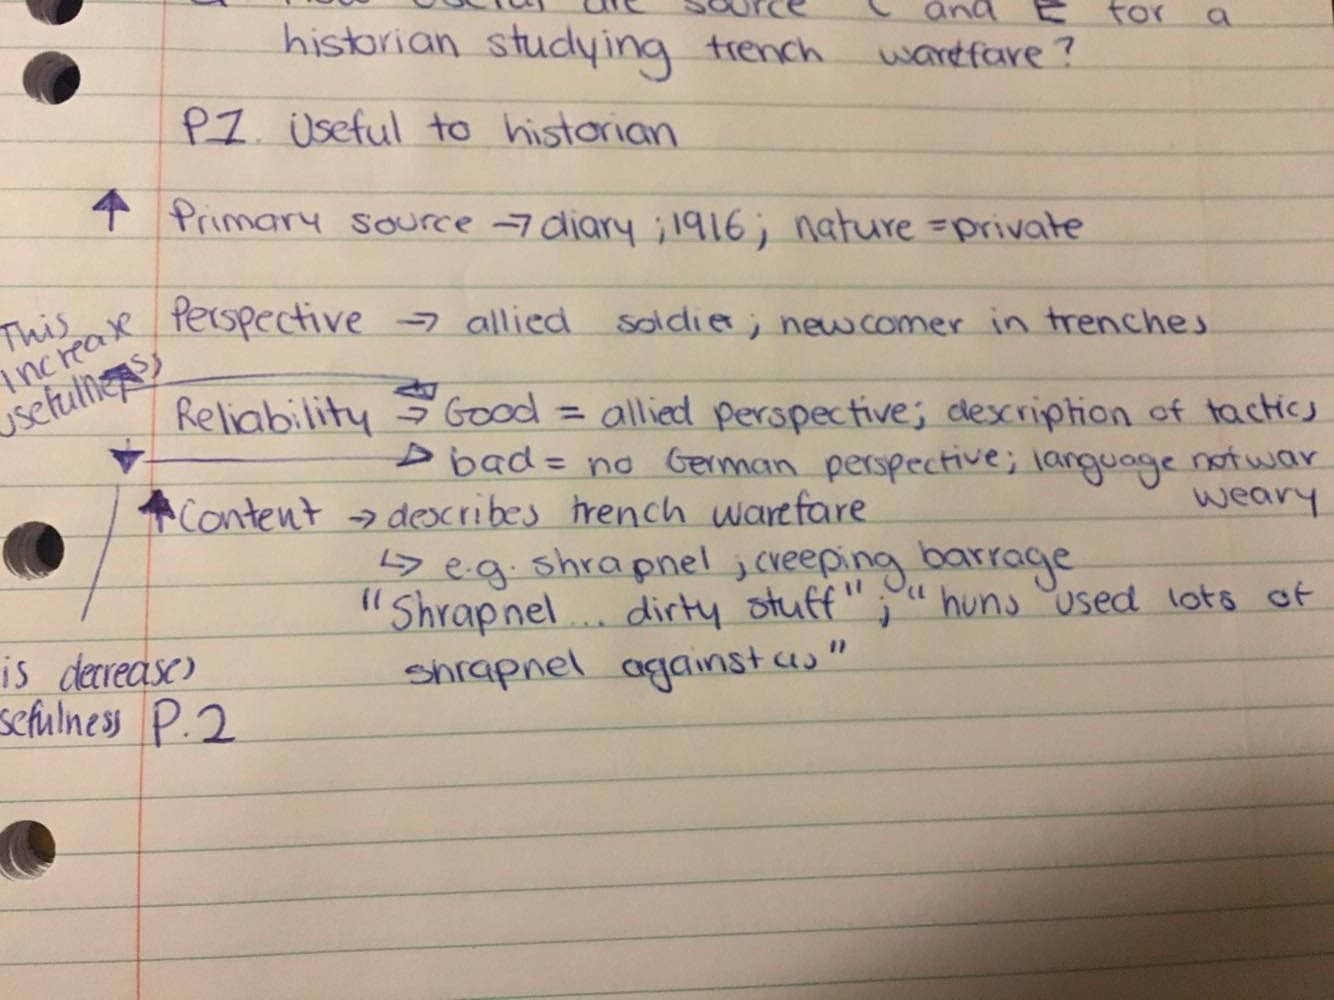 How useful are source C and E for a
historian studying trench warefare?
P1. Useful to historian
↑ Primary source → diary ; 1916 ; nature = private
Perspective → allied soldier ; newcomer in trenches
This
increase
usefulness
Reliability → Good = allied perspective ; description of tactics
↓ → bad = no German perspective ; language not war
weary
↑ Content → describes trench warefare
↳ e.g. shrapnel ; creeping barrage
"Shrapnel ... dirty stuff" ; "huns used lots of
shrapnel against us"
is decreases
sefulness
P.2